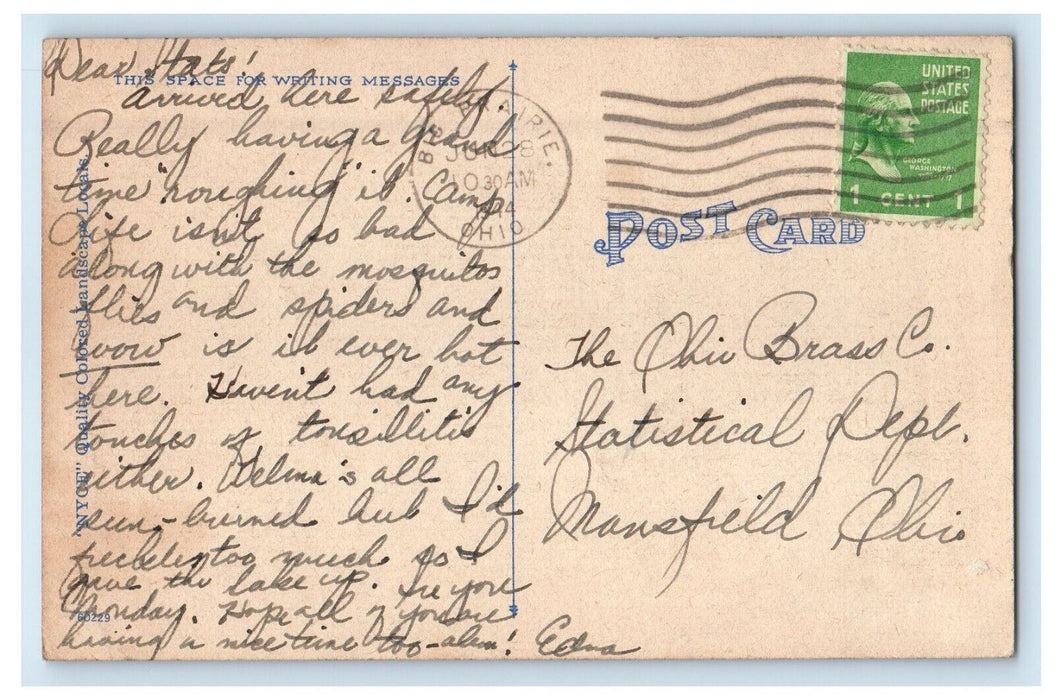 Dear Stats!
THIS SPACE FOR WRITING MESSAGES
Arrived here safely.
Really having a grand
time "roughing" it. Camp
Life isn't so bad
along with the mosquitos
flies and spiders and
wow is it ever hot
here. Haven't had any
touches of tonsillitis
either. Velma's all
sun-burned but I'd
freckle too much so I
gave the lake up. See you
Monday. Hope all of you are
having a nice time too-ahem! Edna
"NYCE" Quality Colored Landscape Locals
60229
PRAIRIE.
JUN 28
10 30 AM
OHIO
UNITED
STATES
POSTAGE
GEORGE
WASHINGTON
1 CENT 1
POST CARD
The Ohio Brass Co.
Statistical Dept.
Mansfield Ohio